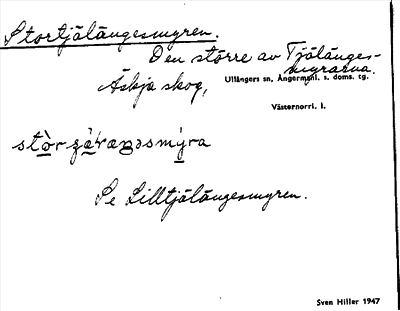 Stortjälängesmyren.
Den större av Tjälänges-
myrarna.
Äskja skog, Ullångers sn, Ångermanl. s. doms. tg.
Västernorrl. l.
Se Lilltjälängesmyren.
Sven Hiller 1947